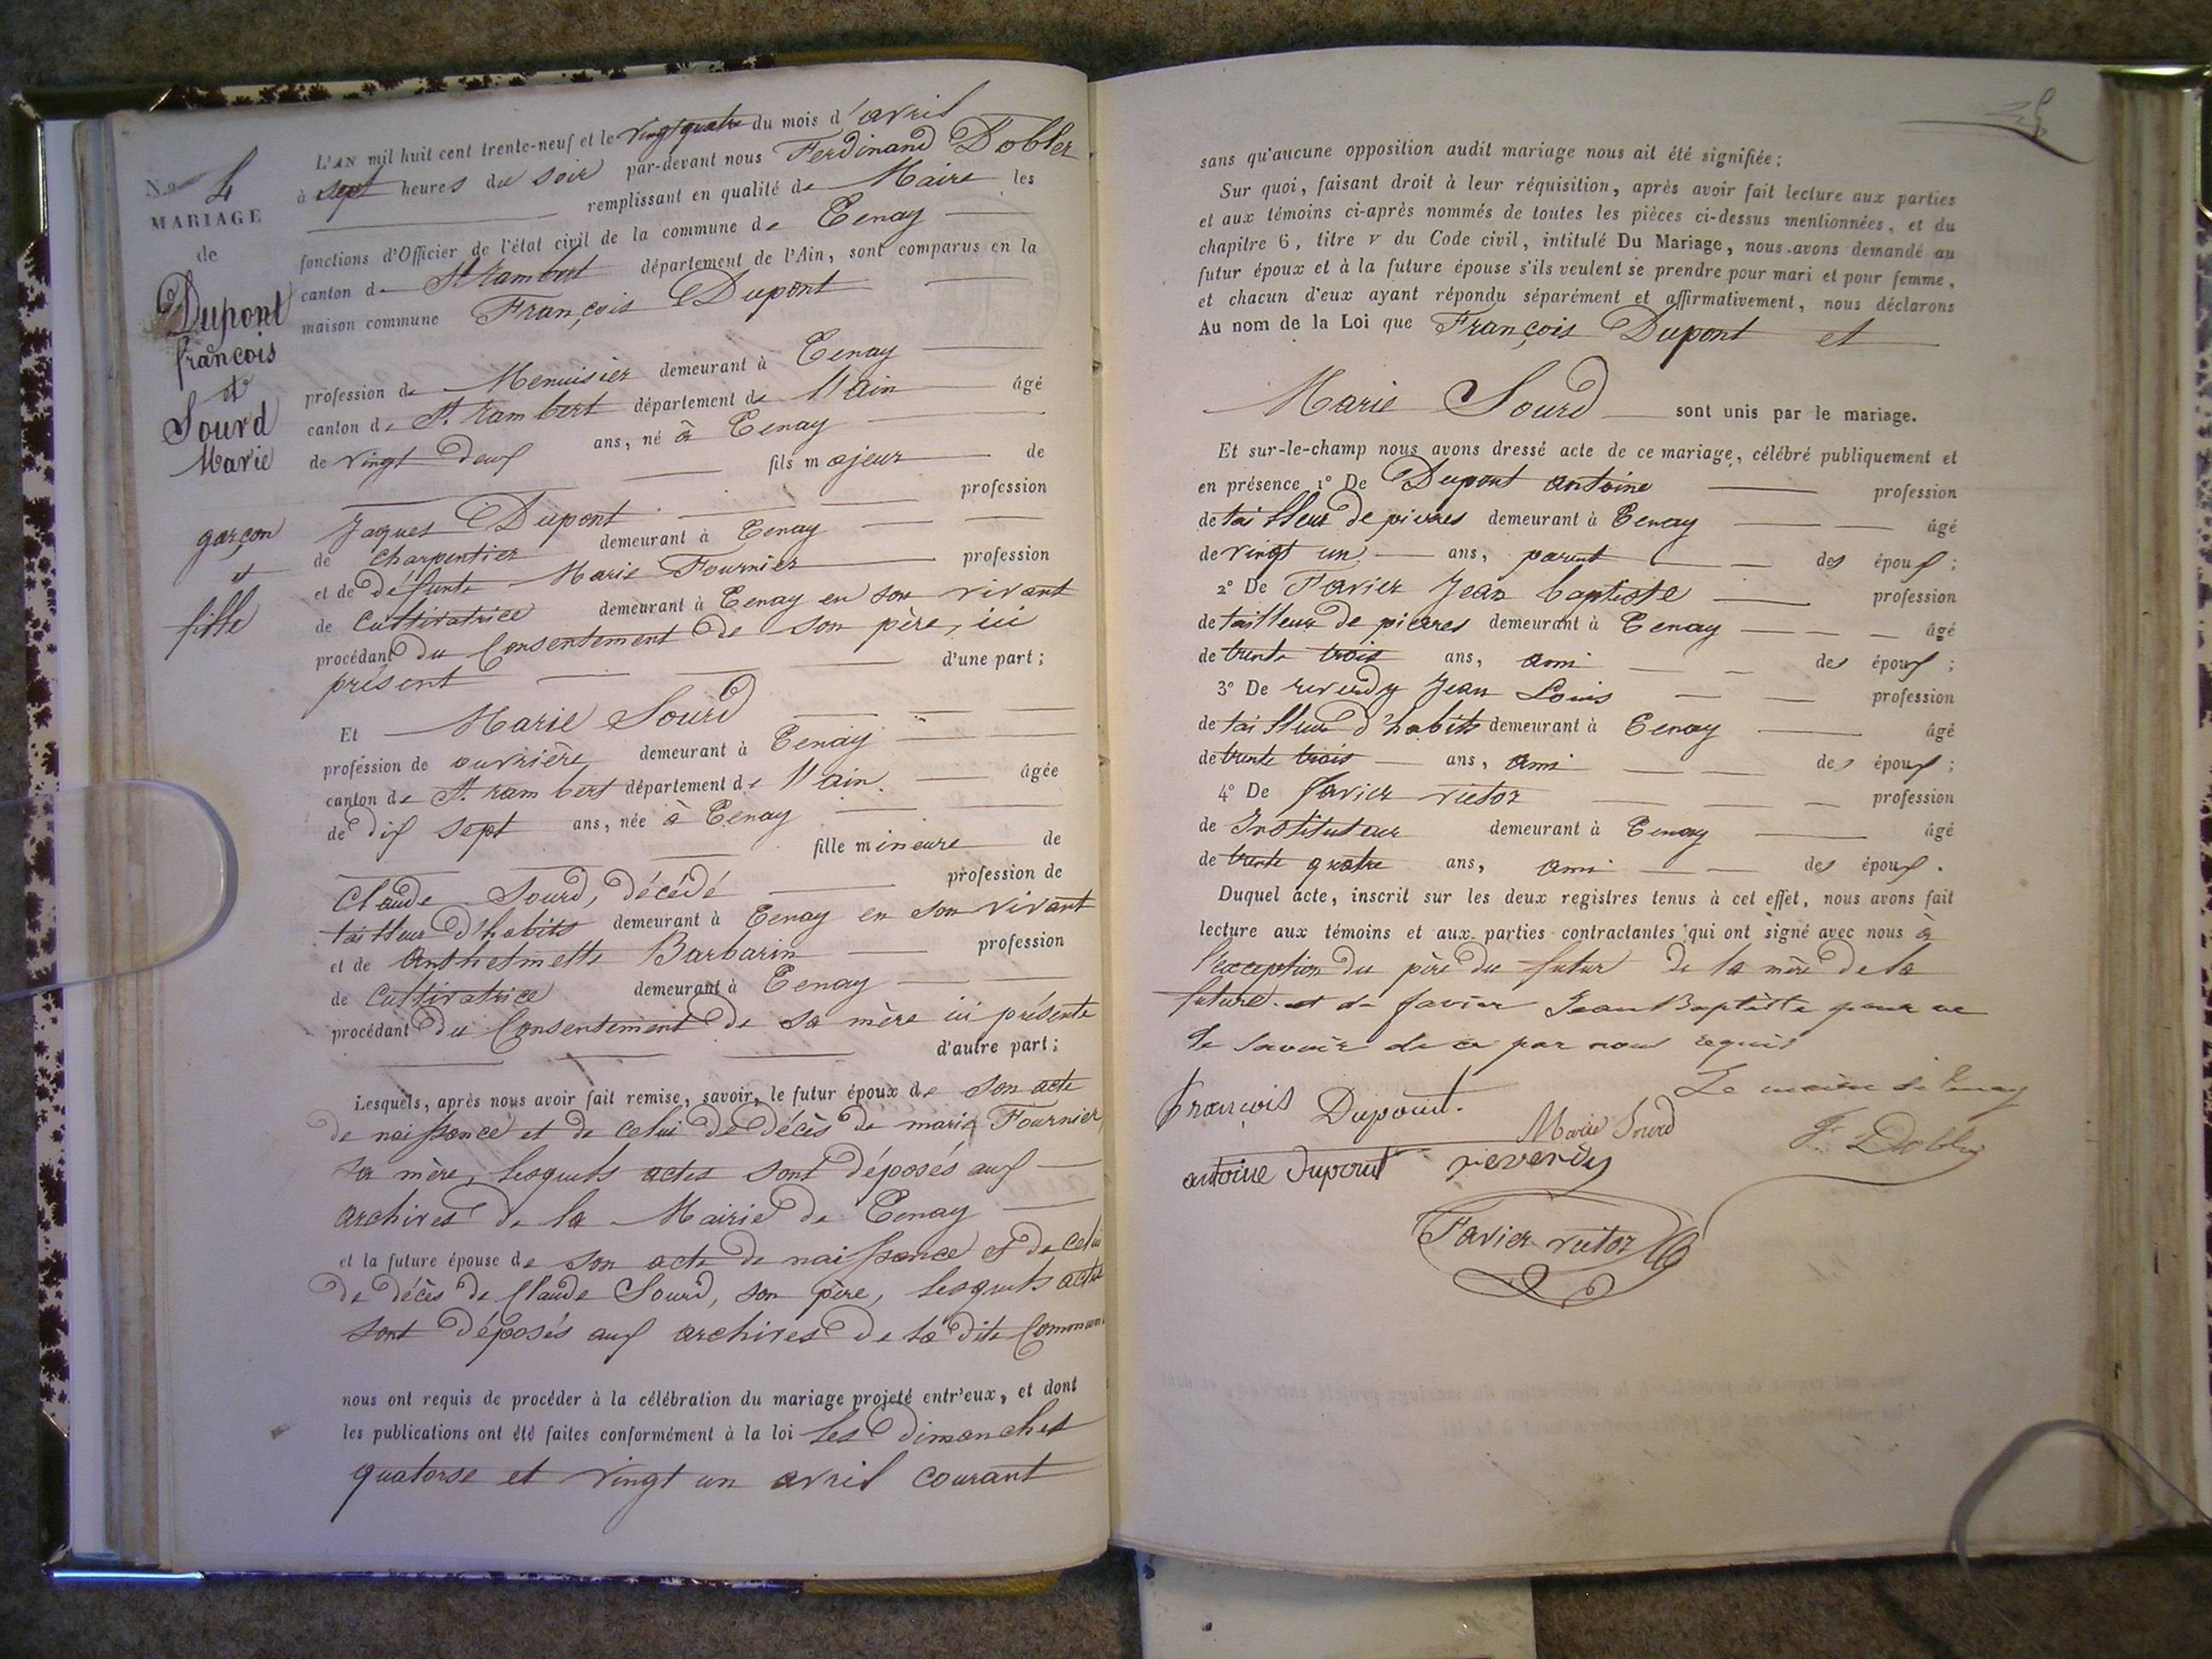 N.o 4
MARIAGE
de
Dupont
françois
et
Sourd
Marie
garçon
et
fille
L'AN mil huit cent trente-neuf et le vingt quatre du mois d'avril
à sept heures du soir par-devant nous Ferdinand Dobler
remplissant en qualité de Maire les
fonctions d'Officier de l'état civil de la commune de Tenay
canton de St rambert département de l'Ain, sont comparus en la
maison commune François Dupont
profession de Menuisier demeurant à Tenay
canton de St. rambert département de l'ain âgé
de vingt deux ans, né à Tenay
fils majeur de
Jaques Dupont profession
de charpentier demeurant à Tenay
et de défunte Marie Fournier profession
de Cultivatrice demeurant à Tenay en son vivant
procédant du Consentement de son père, ici
présent d'une part;
Et Marie Sourd
profession de ouvrière demeurant à Tenay
canton de St. rambert département de l'ain. âgée
de dix sept ans, née à Tenay
fille mineure de
Claude Sourd, décédé profession de
tailleur d'habits demeurant à Tenay en son vivant
et de Anthelmette Barbarin profession
de Cultivatrice demeurant à Tenay
procédant du Consentement de sa mère ici présente
d'autre part;
Lesquels, après nous avoir fait remise, savoir, le futur époux de son acte
de naissance et de celui de décès de marie Fournier
sa mère, lesquels actes sont déposés aux
archives de la Mairie de Tenay
et la future épouse de son acte de naissance et de celui
de décès de Claude Sourd, son père, lesquels actes
sont déposés aux archives de la dite Commune
nous ont requis de procéder à la célébration du mariage projeté entr'eux, et dont
les publications ont été faites conformément à la loi les dimanches
quatorse et vingt un avril courant
sans qu'aucune opposition audit mariage nous ait été signifiée;
Sur quoi, faisant droit à leur réquisition, après avoir fait lecture aux parties
et aux témoins ci-après nommés de toutes les pièces ci-dessus mentionnées, et du
chapitre 6, titre v du Code civil, intitulé Du Mariage, nous avons demandé au
futur époux et à la future épouse s'ils veulent se prendre pour mari et pour femme,
et chacun d'eux ayant répondu séparément et affirmativement, nous déclarons
Au nom de la Loi que François Dupont et
Marie Sourd sont unis par le mariage.
Et sur-le-champ nous avons dressé acte de ce mariage, célébré publiquement et
en présence 1o De Dupont antoine profession
de tailleur de pierres demeurant à Tenay âgé
de vingt un ans, parent des époux;
2o De Favier Jean baptiste profession
de tailleur de pierres demeurant à Tenay âgé
de trente trois ans, ami des époux;
3o De reverdy Jean Louis profession
de tailleur d'habits demeurant à Tenay âgé
de trente trois ans, ami des époux;
4o De favier victor profession
de Instituteur demeurant à Tenay âgé
de trente quatre ans, ami des époux.
Duquel acte, inscrit sur les deux registres tenus à cet effet, nous avons fait
lecture aux témoins et aux parties contractantes qui ont signé avec nous à
l'exception du père du futur de la mère de la
future. et de favier Jean Baptiste pour ne
le savoir de ce par nous requis
Le maire de Tenay
François Dupont.
Marie Sourd
F. Dobler
antoine Dupont reverdy
Favier victor